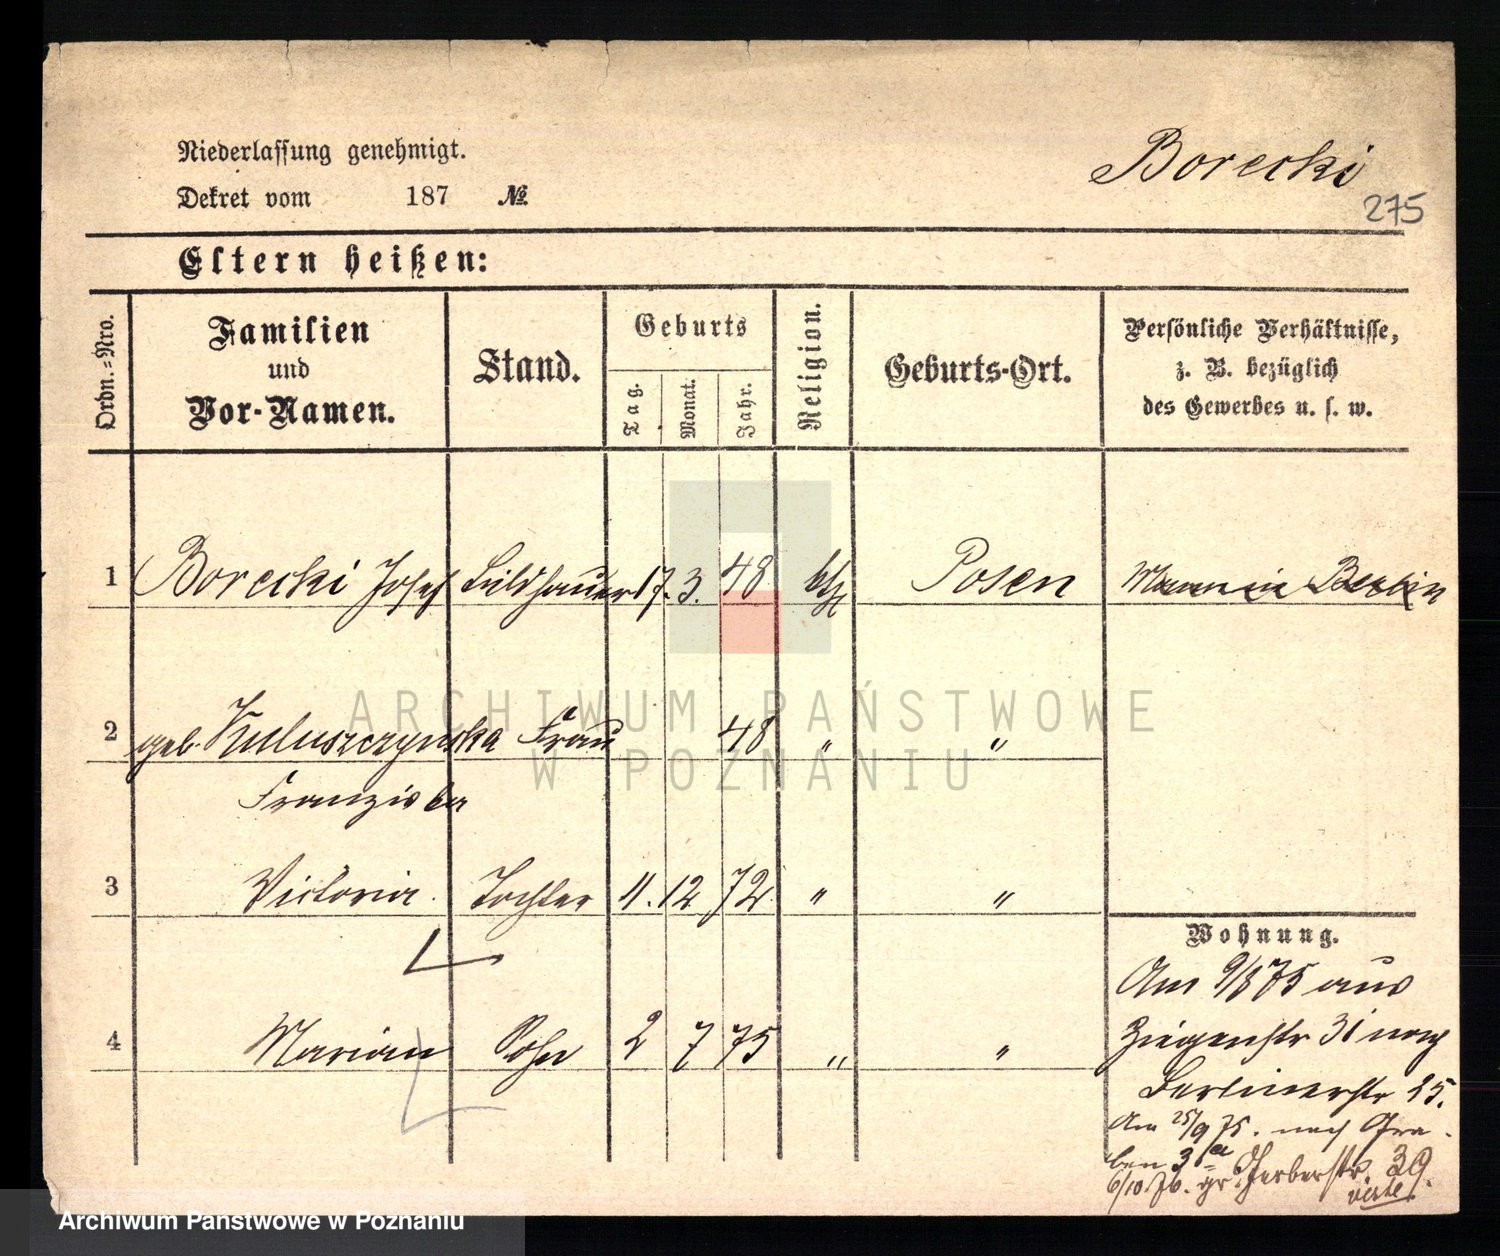 Niederlassung genehmigt.
Dekret vom 187 №
Borecki
275
Eltern heißen:
Ordn.=Nro.
Familien
und
Vor-Namen.
Stand.
Geburts
Tag.
Monat.
Jahr.
Religion.
Geburts-Ort.
Persönliche Verhältnisse,
z. B. bezüglich
des Gewerbes u. s. w.
1 Borecki Josef Bildhauer 17. 3. 48 kth Posen Mann in Berlin
2 geb. Kuluszczynska Frau 48 " "
Franziska
3 Victoria. Tochter 11. 12 72 " "
4 Marian Sohn 2 7 75 " "
Wohnung.
Am 9/8 75 aus
Ziegenstr 31 nach
Berlinerstr 25.
Am 25/9 75. nach Gra-
ben 3a
6/10 76. gr. Gerberstr. 39.
ARCHIWUM PAŃSTWOWE
W POZNANIU
Archiwum Państwowe w Poznaniu